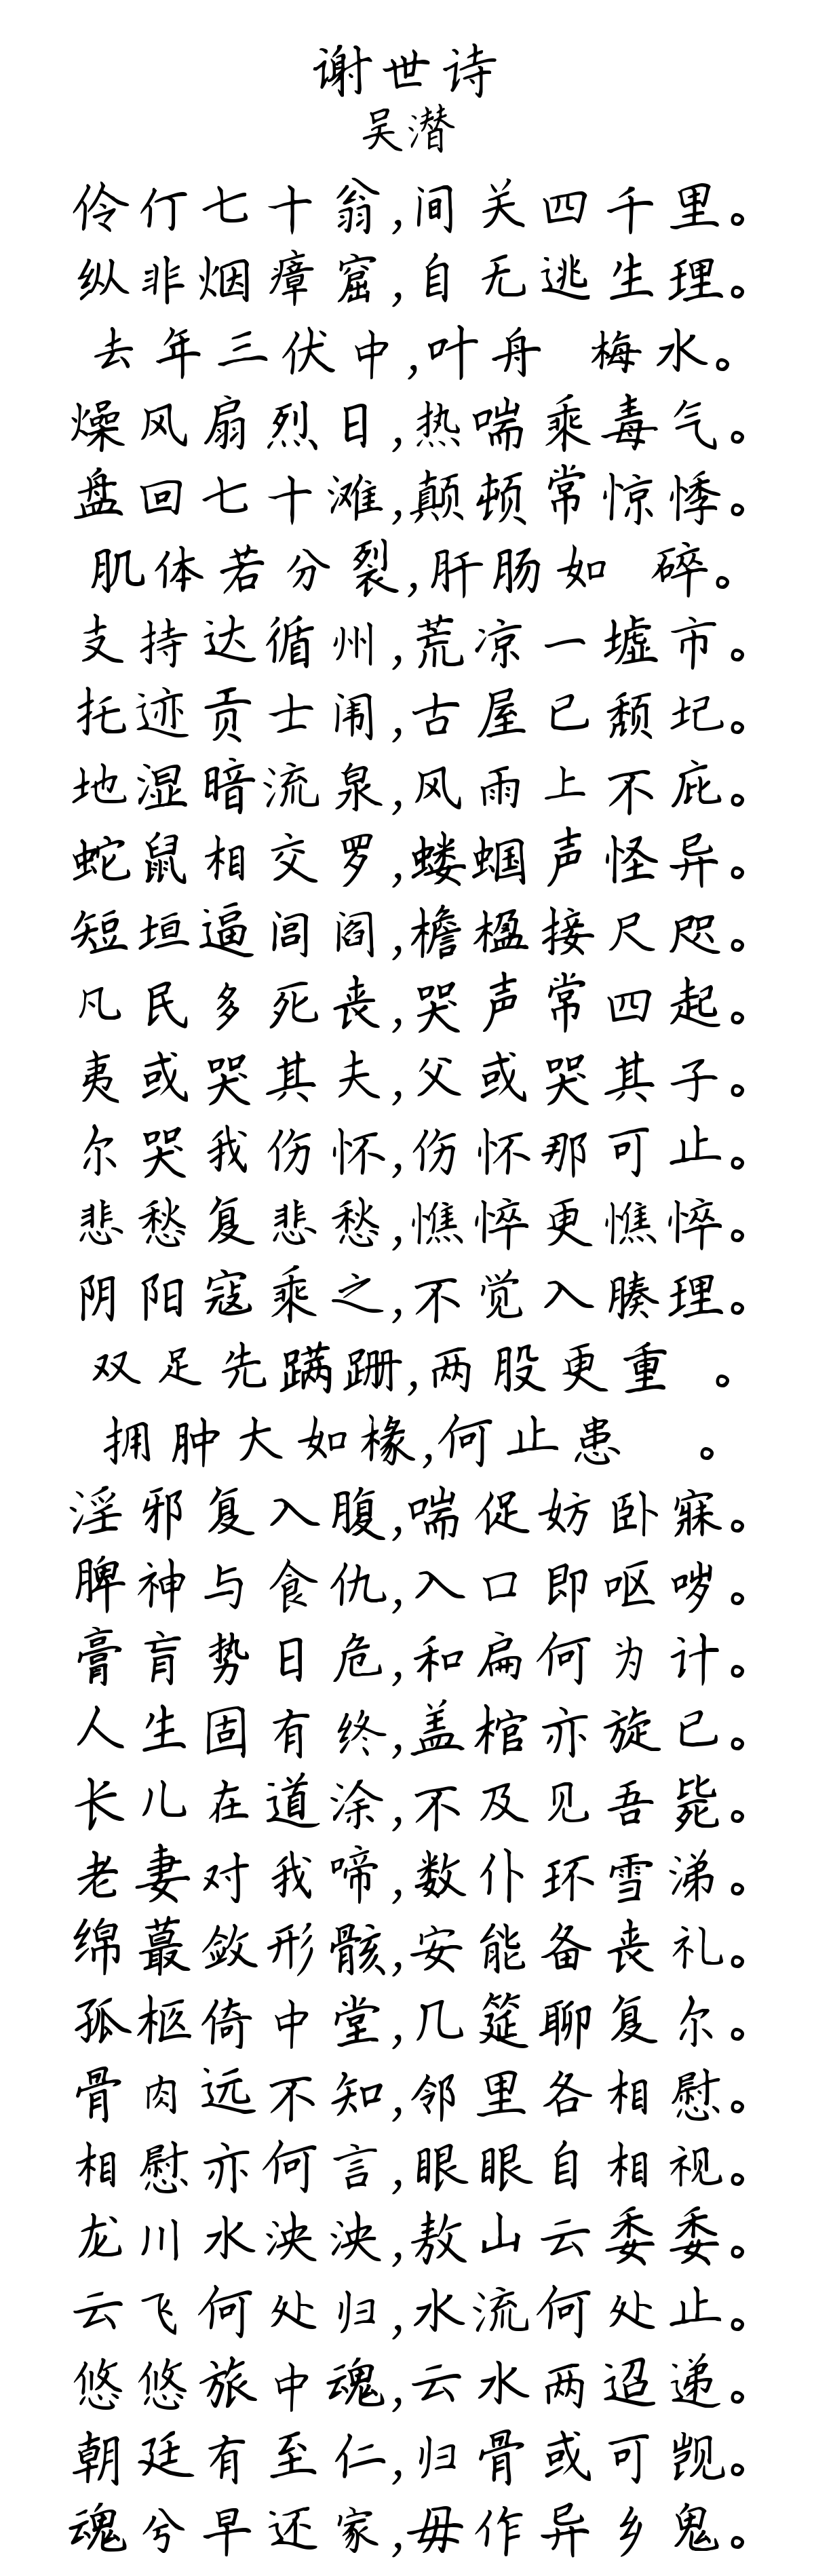 谢世诗
吴潜
伶仃七十翁,间关四千里。
纵非烟瘴窟,自无逃生理。
去年三伏中,叶舟 梅水。
燥风扇烈日,热喘乘毒气。
盘回七十滩,颠顿常惊悸。
肌体若分裂,肝肠如 碎。
支持达循州,荒凉一墟市。
托迹贡士闱,古屋已颓圮。
地湿暗流泉,风雨上不庇。
蛇鼠相交罗,蝼蝈声怪异。
短垣逼闾阎,檐楹接尺咫。
凡民多死丧,哭声常四起。
夷或哭其夫,父或哭其子。
尔哭我伤怀,伤怀那可止。
悲愁复悲愁,憔悴更憔悴。
阴阳寇乘之,不觉入腠理。
双足先蹒跚,两股更重 。
拥肿大如椽,何止患 。
淫邪复入腹,喘促妨卧寐。
脾神与食仇,入口即呕哕。
膏肓势日危,和扁何为计。
人生固有终,盖棺亦旋已。
长儿在道涂,不及见吾毙。
老妻对我啼,数仆环雪涕。
绵蕞敛形骸,安能备丧礼。
孤柩倚中堂,几筵聊复尔。
骨肉远不知,邻里各相慰。
相慰亦何言,眼眼自相视。
龙川水泱泱,敖山云委委。
云飞何处归,水流何处止。
悠悠旅中魂,云水两迢递。
朝廷有至仁,归骨或可觊。
魂兮早还家,毋作异乡鬼。